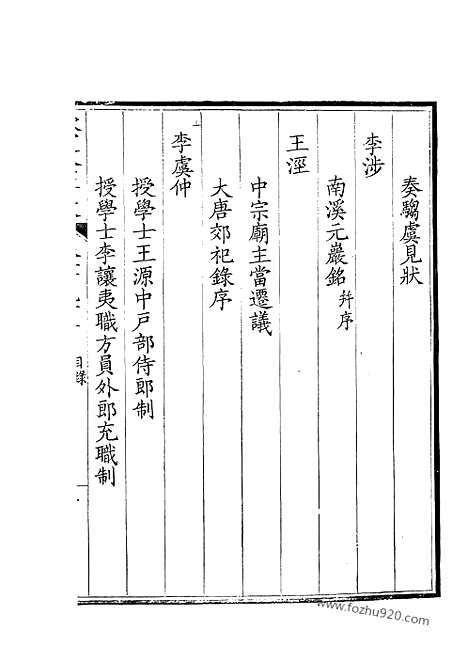 奏騶虞見狀
李涉
南溪元巖銘 幷序
王涇
中宗廟主當遷議
大唐郊祀錄序
李虞仲
授學士王源中戸部侍郎制
授學士李讓夷職方員外郎充職制
目錄
www.fozhu920.com